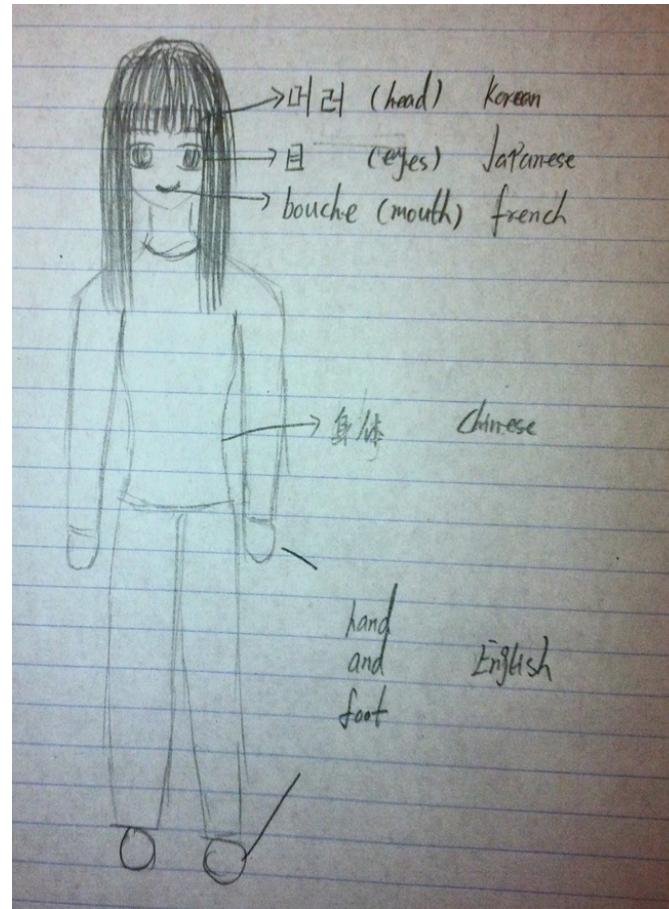 머러 (head) Korean
目 (eyes) Japanese
bouche (mouth) french
身体 Chinese
hand
and English
foot